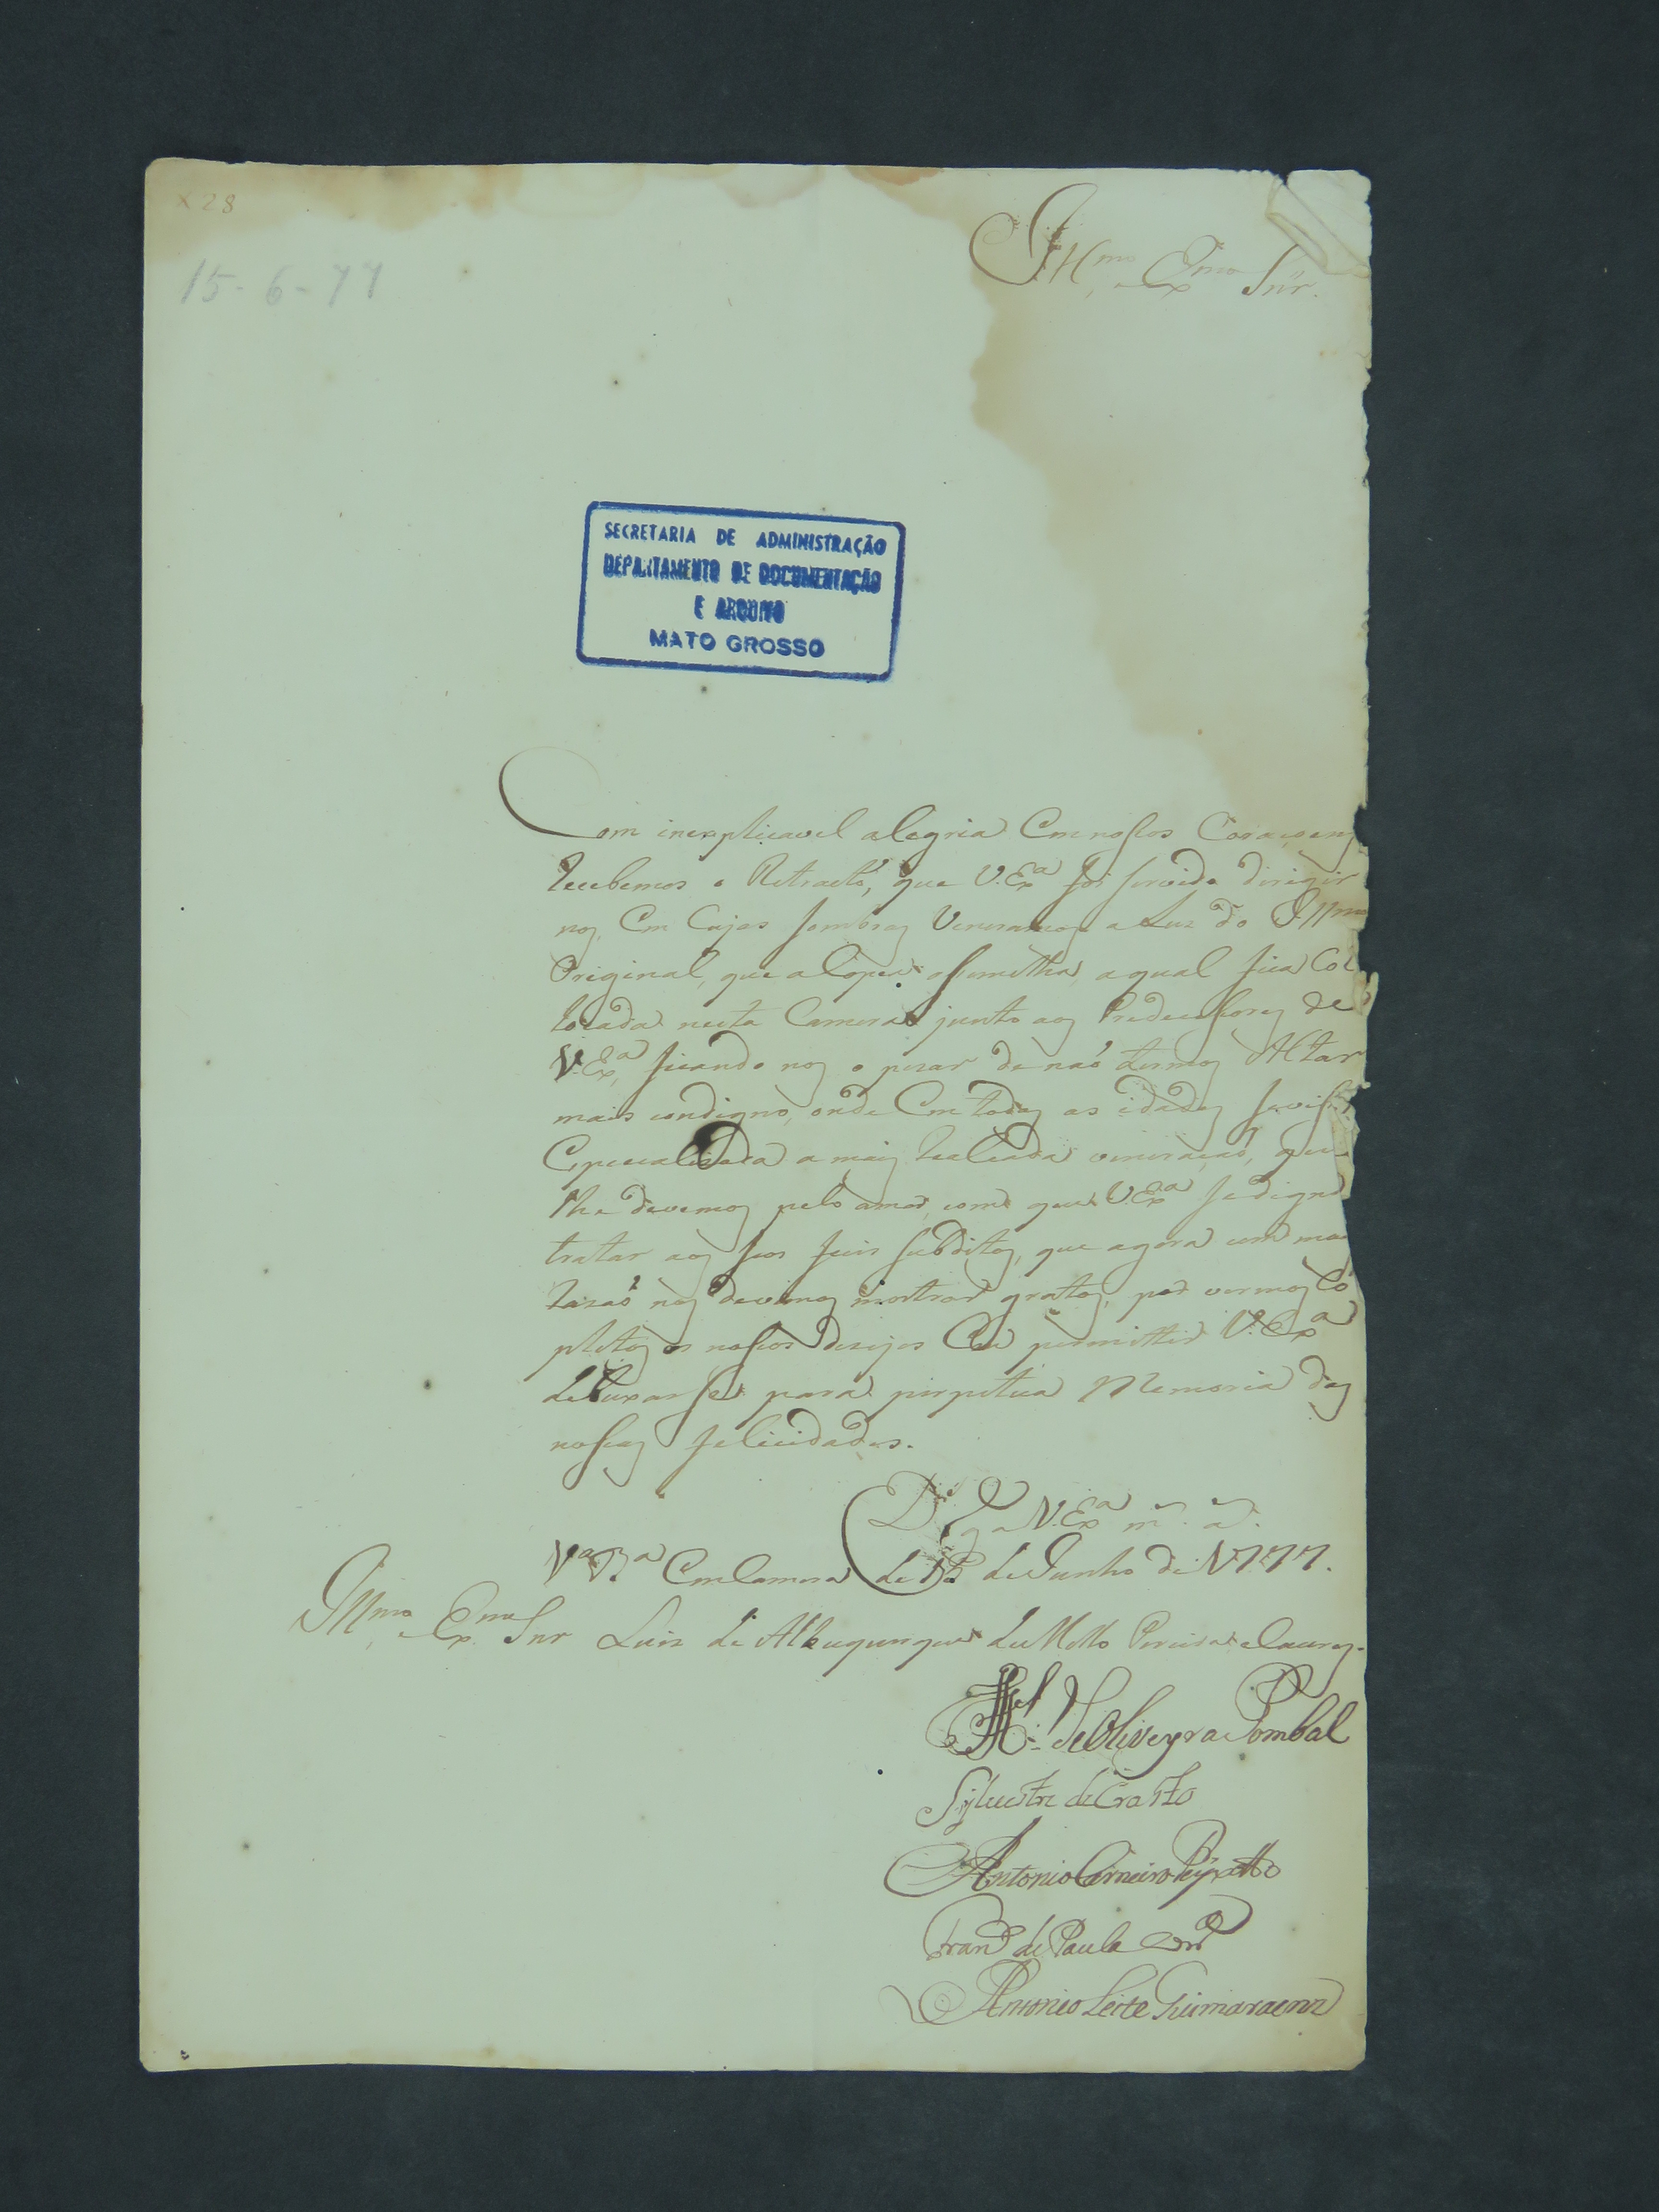 x 28
15-6-77
Illmo e Exmo Snr.
SECRETARIA DE ADMINISTRAÇÃO
DEPARTAMENTO DE DOCUMENTAÇÃO
E ARQUIVO
MATO GROSSO
Com inexplicavel alegria Em nossos Coraçoens
recebemos o Retracto, que V. Exa foi servido dirigir
nos, Em Cujas sombras Veneramos a Luz do Illmo
Original, que a Copea assemilha, a qual fica Col
locada nesta Camera junto aos Predecessores de
V. Exa, ficando nos o pezar de naó termos Altar
mais condigno, onde Em todas as idades se visse
Especealizada a mais realcada veneraçaó, que
lhe devemos pelo amor, com que V. Exa se digna
tratar aos seos fieis subditos, que agora com mais
razaó nos devemos mostrar gratos, por vermos Co
pletos os nossos dezejos Em permittir V. Exa
debuxarse para perpetua Memoria das
nossas felicidades.
Ds. ge a V. Exa ms. as.
Va Ba Em Camera de 15 de Junho de 1777.
Illmo e Exmo Snr Luis de Albuquerque de Mello Pereira e Caceres.
de Oliveyra Pombal
Sylvestre de Crasto
Antonio Carneiro Peyxotto
Franco de Paula
Antonio Leite Guimaraens